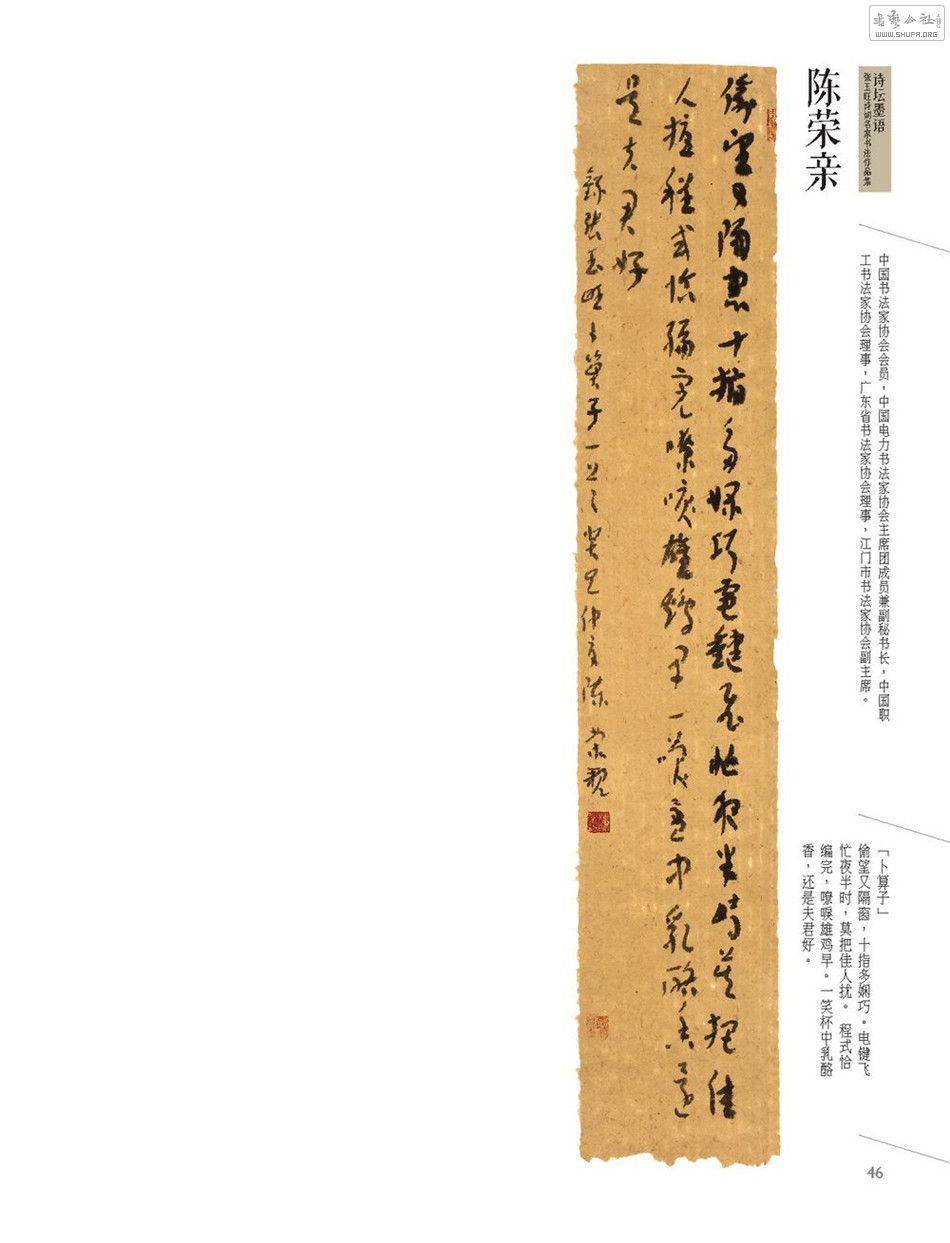 书艺公社
WWW.SHUFA.ORG
诗坛墨语
张玉旺诗词名家书法作品集
陈荣亲
中国书法家协会会员，中国电力书法家协会主席团成员兼副秘书长，中国职
工书法家协会理事，广东省书法家协会理事，江门市书法家协会副主席。
「卜算子」
偷望又隔窗，十指多娴巧。电键飞
忙夜半时，莫把佳人扰。 程式恰
编完，嘹唳雄鸡早。一笑杯中乳酪
香，还是夫君好。
偷望又隔窗十指多娴巧电键飞忙夜半时莫把佳
人扰程式恰编完嘹唳雄鸡早一笑杯中乳酪香还
是夫君好
录张玉旺卜算子一首癸巳仲夏陈荣亲
46